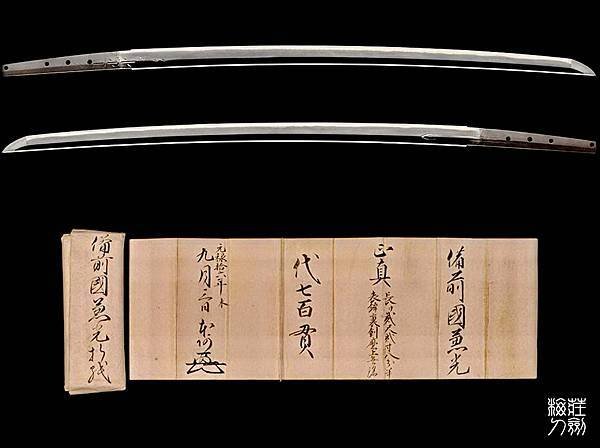 備前國兼光
正真
長サ貳尺貳寸八分半
代七百貫
元禄拾六年未
九月三日 本阿
備前國兼光折紙